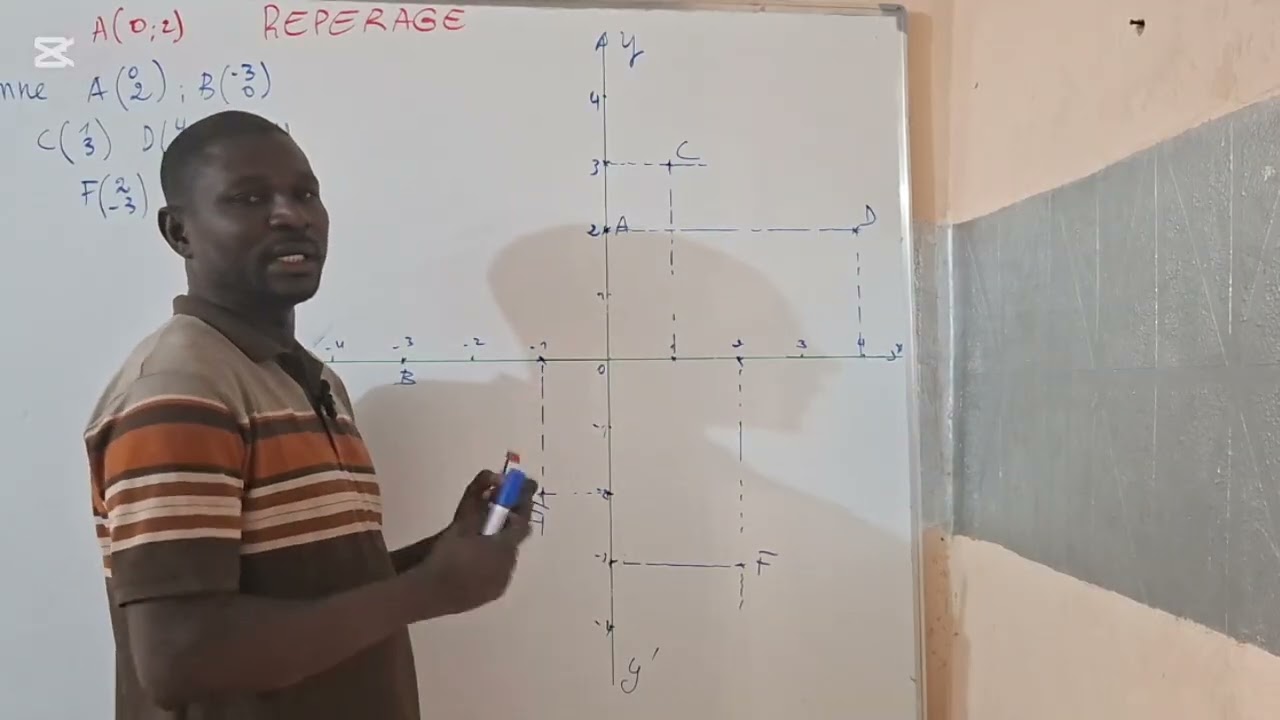 A(0;2) REPERAGE
A(0 2) ; B(-3 0)
C(1 3) D(4
F(2 -3)
y
4
3 C
2 A D
1
-4 -3 -2 -1 1 2 3 4 x
0
B
-1
-2
-3 F
-4
y'